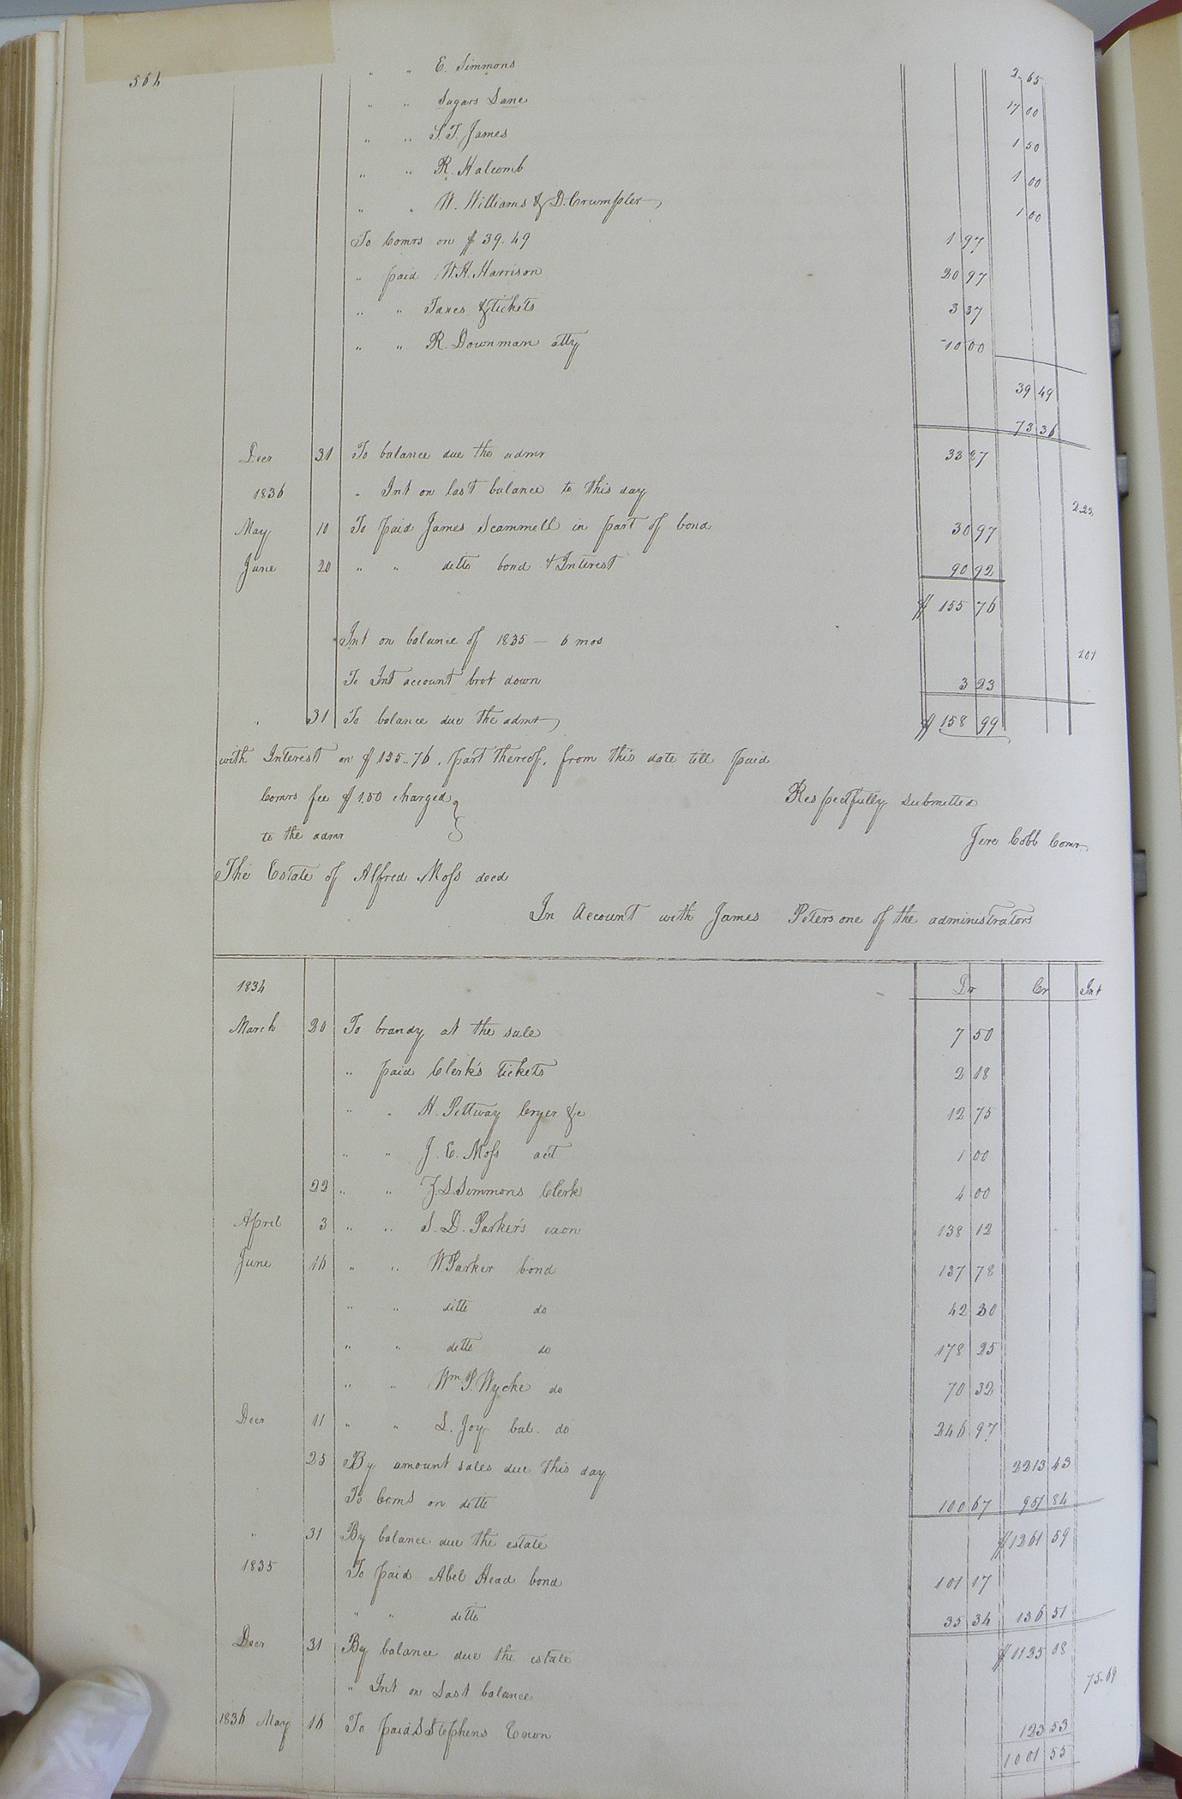 564
" " E. Simmons 2 65
" " Sugars Lane 17 00
" " S. T. James 1 50
" " R. Halcomb 1 00
" " W. Williams & D. Crumpler 1 00
To Comrs on $39.49 1 97
" paid W. H. Harrison 20 97
" " Taxes & tickets 3 37
" " R. Downman atty 10 00
39 49
73 36
Decr 31 To balance due the admr 33 87
1836 " Int on last balance to this day 2.22
May 10 To paid James Scammell in part of bond 30 97
June 20 " " ditto bond & Interest 90 92
$ 155 76
Int on balance of 1835 — 6 mos 101
To Int account brot down 3 23
" 31 To balance due the admr $ 158 99
with Interest on $155..76, part thereof, from this date till paid
Comrs fee $1.50 charged Respectfully submitted
to the admr Jere Cobb Comr
The Estate of Alfred Moss decd
In Account with James Peters one of the administrators
1834 Dr Cr Int
March 20 To brandy at the sale 7 50
" paid Clerk's tickets 2 18
" " H. Pettway Cryer &c 12 75
" " J. E. Moss act 1 00
22 " " J. S. Simmons Clerk 4 00
April 3 " " S. D. Parker's exon 138 12
June 16 " " W Parker bond 137 78
" " ditto do 42 30
" " ditto do 178 25
" " Wm P. Wyche do 70 32
Decr 11 " " L. Joy bal. do 246 97
25 By amount sales due this day 2213 43
To Coms on ditto 100 67 951 84
" 31 By balance due the estate $1261 59
1835 To paid Abel Head bond 101 17
" " ditto 35 34 136 51
Decr 31 By balance due the estate $1125 08
" Int on Last balance 75.69
1836 May 16 To paid S Stephens Exon 123 53
1001 55